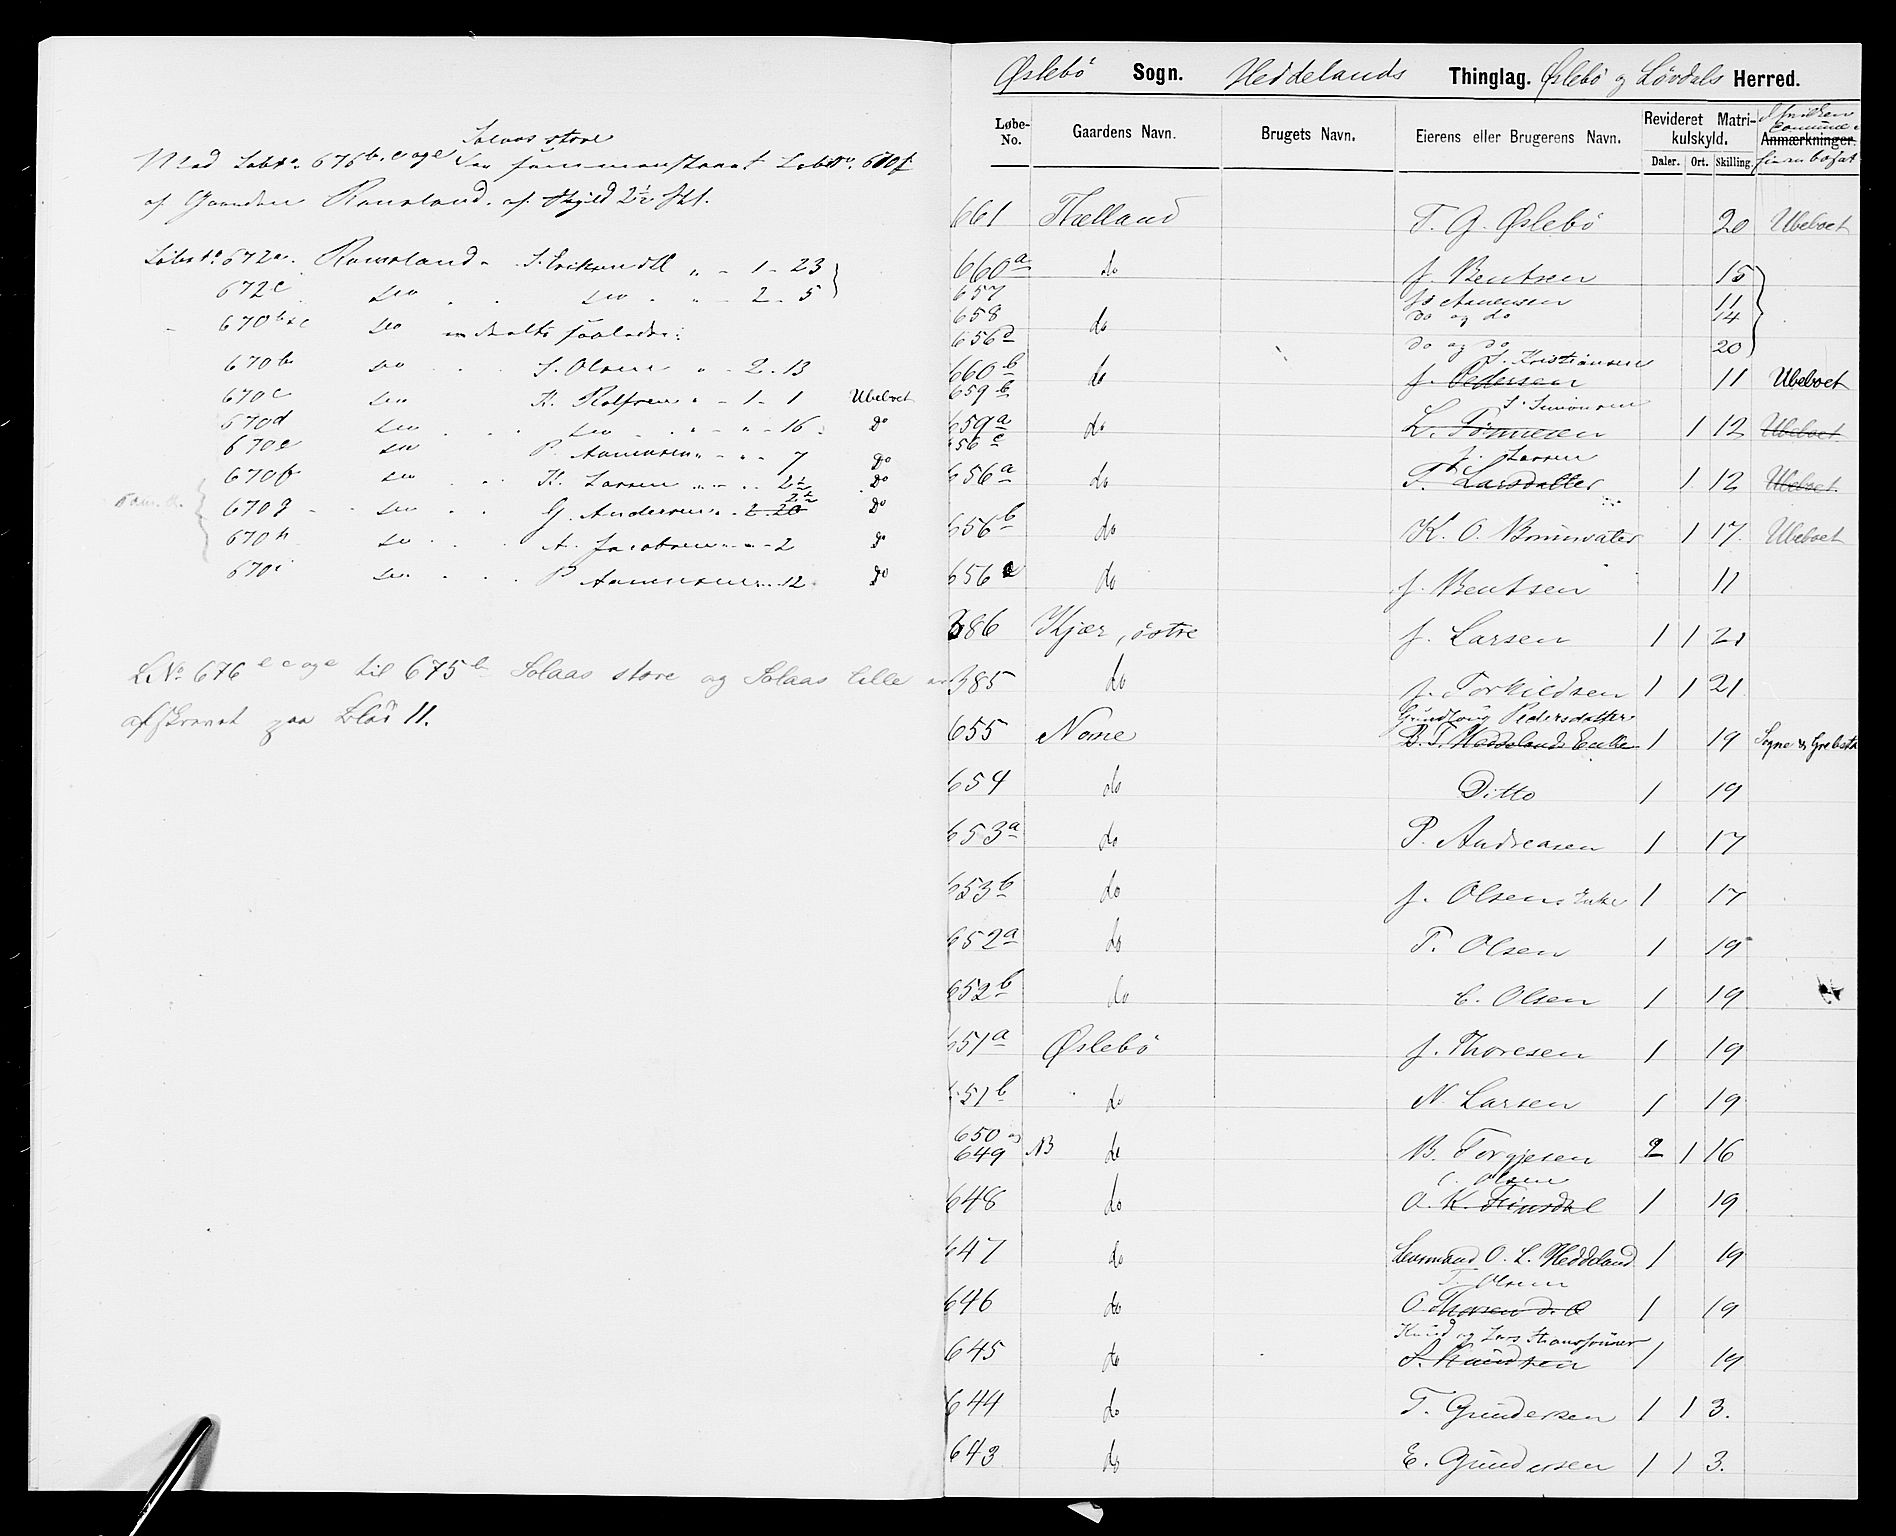 Solaas store
Med Løbno. 676 b, c og e sammenstaaet Løbno. 670f
af Gaarden Ramsland. af Skyld 2½ Skl.
Løbno 672a. Ramsland - S. Eriksen " - 1 - 23
672c do do " - 2 - 5
670b-c do
670b do S. Olsen " - 2 - 13
670c do K. Rolfsen " - 1 - 1 Ubeboet
670d do do " - " - 16 do
670e do P. Aanensen " - " - 7 do
670f do K. Larsen " " 2½ do
670g do G. Andersen 2 20 2½ do
670h do A. Jacobsen " - 2 do
670i do P. Aanensen 12 do
LNo 676 b c og e til 675b Solaas store og Solaas lille
afskrevet paa Blad 11.
Øslebö Sogn. Heddelands Thinglag. Øslebö og Løvdals Herred.
Løbe-No. Gaardens Navn. Brugets Navn. Eierens eller Brugerens Navn. Revideret Matrikulskyld. Anmærkninger.
Daler. Ort. Skilling.
661 Hælland T. G. Øslebö 20 Ubeboet
660a do J. Bentsen 15
657 Aanensen 11
658 do do og do 14
656d do og do 20
S. Kristiansen
660b 659b do J. Pedersen 11 Ubeboet
S. Simonsen
659a 656c do L. Tönnesen 1 12 Ubeboet
J. Larsen
656a do T. Larsdatter 1 12 Ubeboet
656b do K. O. 1 17. Ubeboet
656e do J. Bentsen 11
386 Kjær, östre J. Larsen 1 1 21
385 do J. Torkildsen 1 1 21
Gundborg Pedersdatter
655 Nome B. T. Heddelands Enke 1 19 Sogne
654 do Ditto 1 19
653a do P. Andreasen 1 17
653b do J. Olsens Enke 1 17
652a do T. Olsen 1 19
652b do C. Olsen 1 19
651a Øslebö J. Thoresen 1 19
651b do N. Larsen 1 19
650 og
649 NB do B. Torgjesen 2 1 16
C. Olsen
648 do O. K. Finsdal 1 19
647 do Lensmand O. L. Heddeland 1 19
T. Olsen
646 do O. Thorsen d. Æ 1 19
Knud og Lars Hanssönner
645 do S. Knudsen 1 19
644 do T. Gundersen 1 1 3.
643 do E. Gundersen 1 1 3.